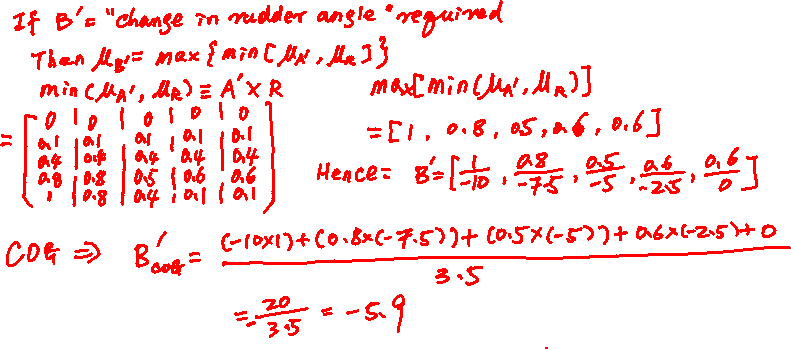 If B' = "change in rudder angle" required
Then μB' = max{min[μA', μR]}
min(μA', μR) ≡ A' × R
= [0 | 0 | 0 | 0 | 0
0.1 | 0.1 | 0.1 | 0.1 | 0.1
0.4 | 0.4 | 0.4 | 0.4 | 0.4
0.8 | 0.8 | 0.5 | 0.6 | 0.6
1 | 0.8 | 0.4 | 0.1 | 0.1]
max[min(μA', μR)]
= [1, 0.8, 0.5, 0.6, 0.6]
Hence = B' = [1/-10, 0.8/-7.5, 0.5/-5, 0.6/-2.5, 0.6/0]
COG ⇒ B'COG = (-10×1)+(0.8×(-7.5))+(0.5×(-5))+0.6×(-2.5)+0 / 3.5
= -20/3.5 = -5.9